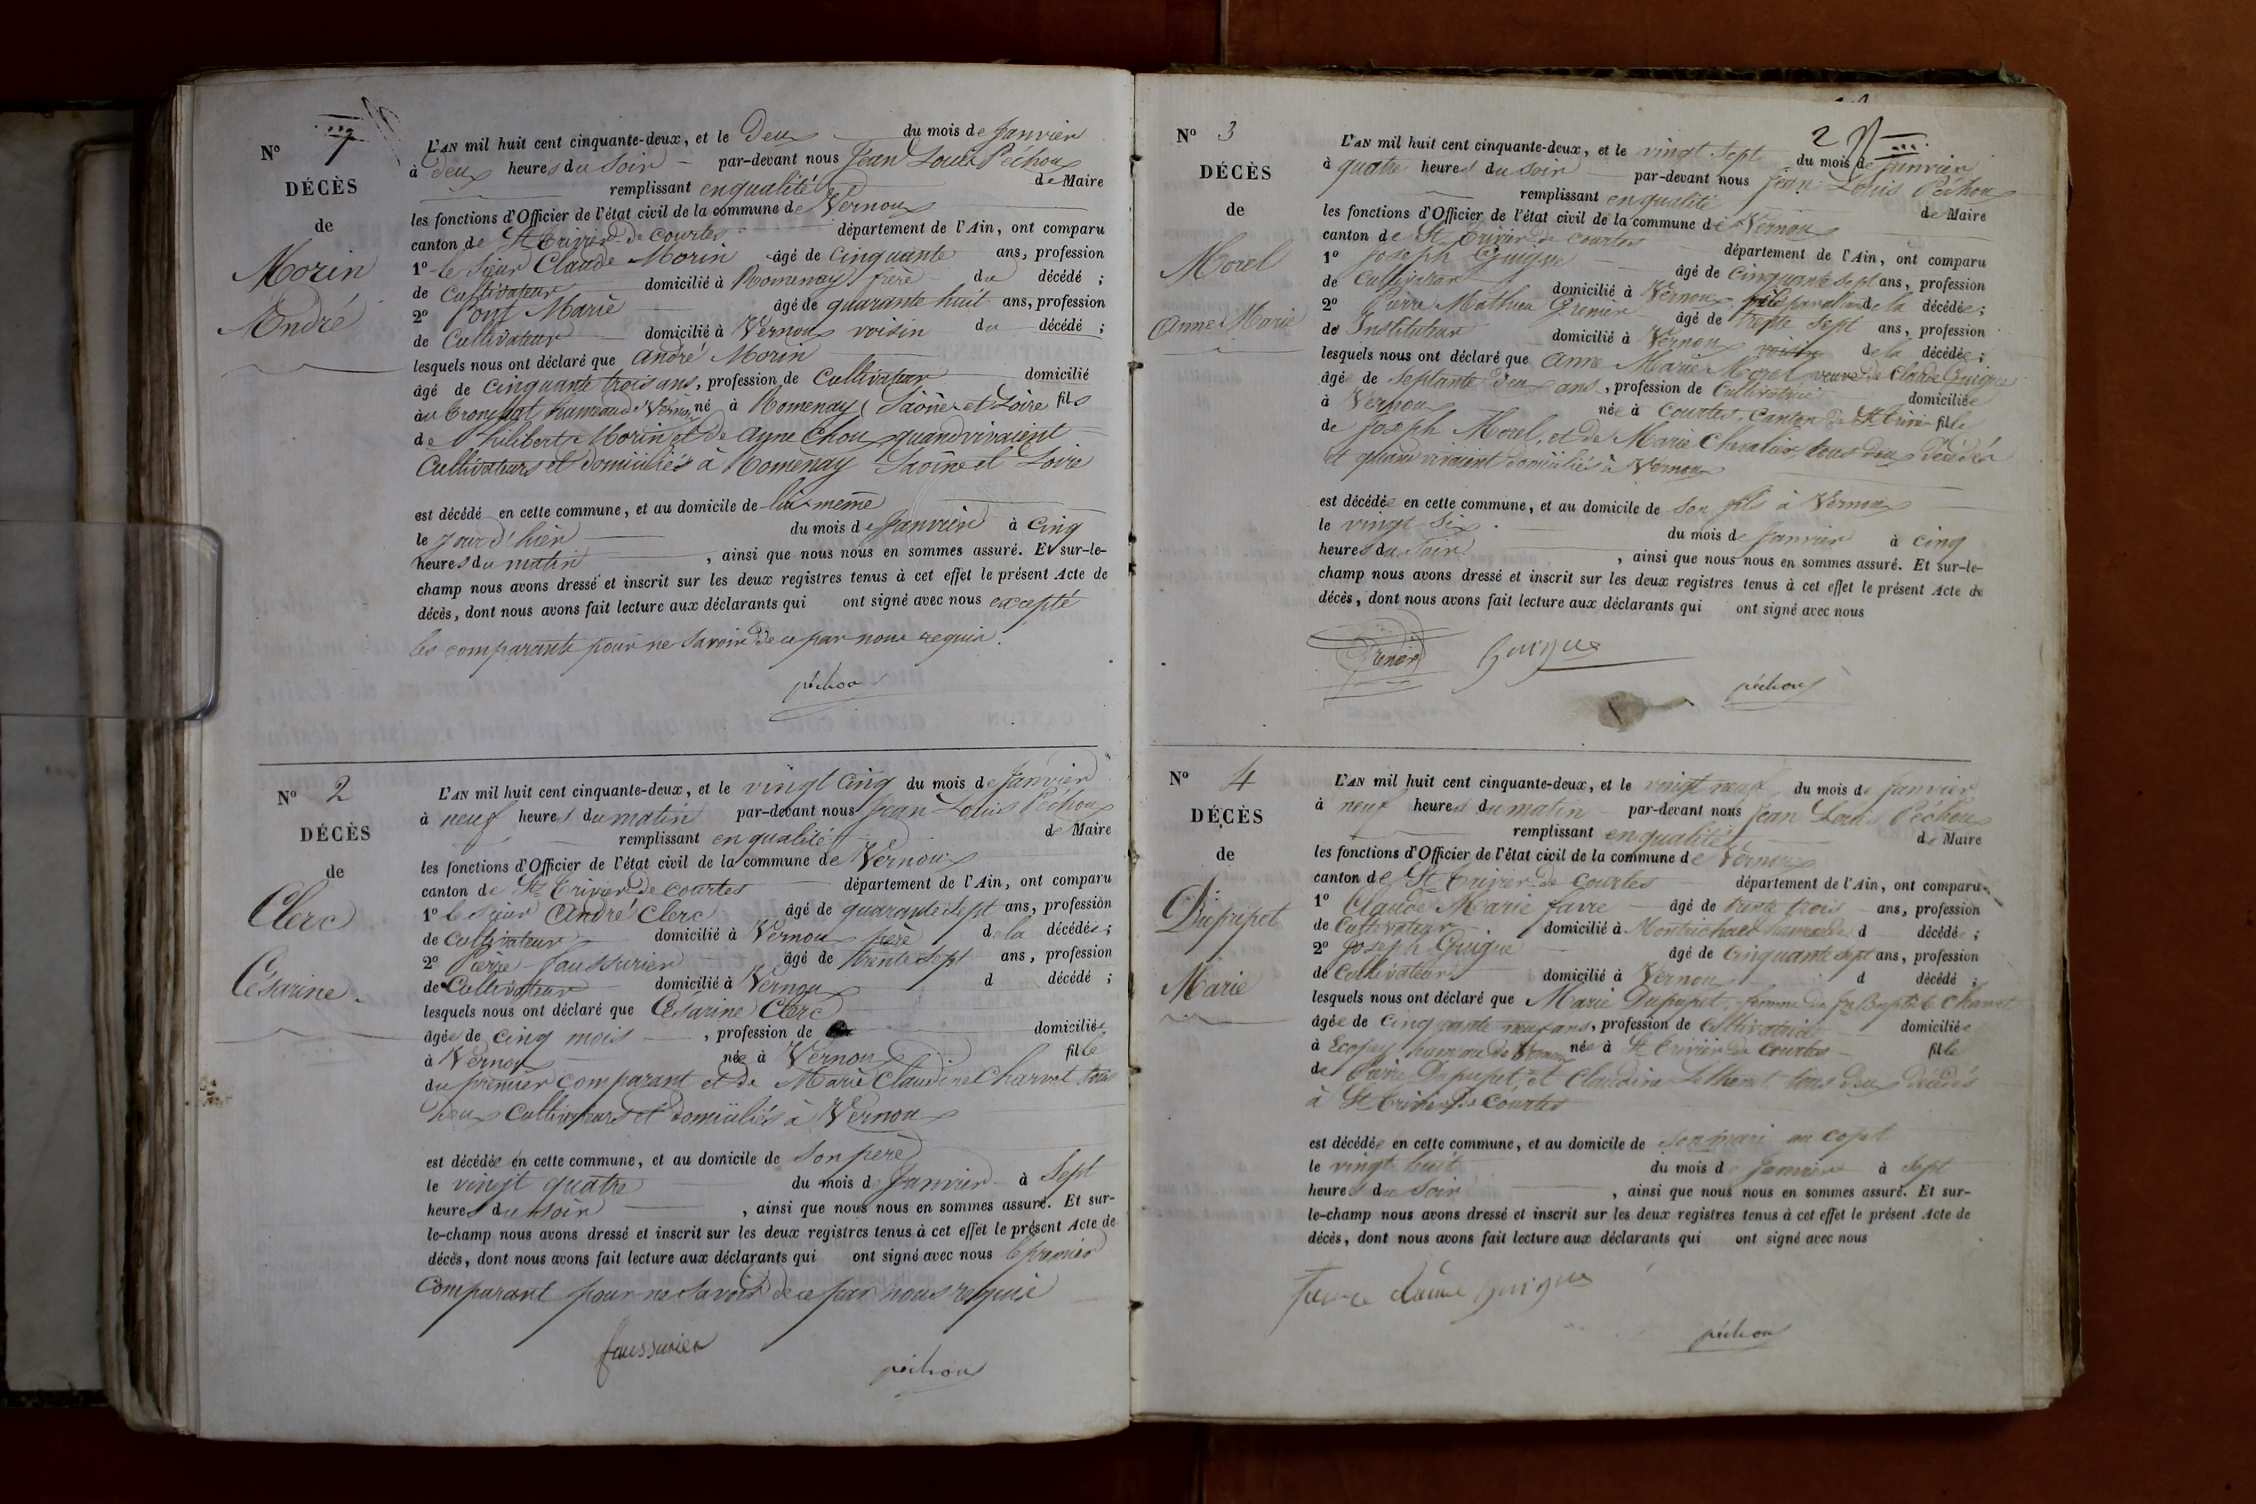 N° 1
DÉCÈS
de
Morin
André
L'AN mil huit cent cinquante-deux, et le Deux du mois de Janvier
à deux heures du Soir par-devant nous Jean Louis Péchoux
remplissant en qualité de Maire
les fonctions d'Officier de l'état civil de la commune de Vernoux
canton de St Trivier de Courtes département de l'Ain, ont comparu
1° le sieur Claude Morin âgé de Cinquante ans, profession
de Cultivateur domicilié à Romenay frère du décédé ;
2° Marie âgé de quarante huit ans, profession
de Cultivateur domicilié à Vernoux voisin du décédé ;
lesquels nous ont déclaré que andré Morin
âgé de Cinquante trois ans, profession de Cultivateur domicilié
au hameau de Vernoux né à Romenay, Saône et Loire fils
de Philibert Morin et de Anne Chou quand vivaient
Cultivateurs et domiciliés à Romenay Saône et Loire
est décédé en cette commune, et au domicile de lui-même
le jour d'hier du mois de Janvier à Cinq
heures du matin , ainsi que nous nous en sommes assuré. Et sur-le-
champ nous avons dressé et inscrit sur les deux registres tenus à cet effet le présent Acte de
décès, dont nous avons fait lecture aux déclarants qui ont signé avec nous excepté
les comparants pour ne savoir de ce par nous requis.
péchoux
N° 2
DÉCÈS
de
Clerc
Césarine
L'AN mil huit cent cinquante-deux, et le vingt Cinq du mois de Janvier
à neuf heures du matin par-devant nous Jean Louis Péchoux
remplissant en qualité de Maire
les fonctions d'Officier de l'état civil de la commune de Vernoux
canton de St Trivier de Courtes département de l'Ain, ont comparu
1° le sieur André Clerc âgé de quarante sept ans, profession
de Cultivateur domicilié à Vernoux père de la décédée ;
2° Pierre faussurier âgé de trente sept ans, profession
de Cultivateur domicilié à Vernoux d décédé ;
lesquels nous ont déclaré que Césarine Clerc
âgée de cinq mois , profession de domiciliée
à Vernoux née à Vernoux fille
du premier comparant et de Marie Claudine Charvet tous
deux Cultivateurs et domiciliés à Vernoux
est décédée en cette commune, et au domicile de Son père
le vingt quatre du mois de Janvier à Sept
heures du soir , ainsi que nous nous en sommes assuré. Et sur-
le-champ nous avons dressé et inscrit sur les deux registres tenus à cet effet le présent Acte de
décès, dont nous avons fait lecture aux déclarants qui ont signé avec nous le premier
Comparant pour ne savoir de ce par nous requis
faussurier
péchoux
2
N° 3
DÉCÈS
de
Morel
Anne Marie
L'AN mil huit cent cinquante-deux, et le vingt Sept du mois de Janvier
à quatre heures du soir par-devant nous Jean Louis Péchoux
remplissant en qualité de Maire
les fonctions d'Officier de l'état civil de la commune de Vernoux
canton de St Trivier de Courtes département de l'Ain, ont comparu
1° Joseph Guigue âgé de Cinquante sept ans, profession
de Cultivateur domicilié à Vernoux de la décédée ;
2° Pierre Mathieu Grenier âgé de trente Sept ans, profession
de Instituteur domicilié à Vernoux voisin de la décédée ;
lesquels nous ont déclaré que Anne Marie Morel veuve de Claude Guigue
âgée de Septante deux ans, profession de Cultivatrice domiciliée
à Vernoux née à Courtes, Canton de St Trivier fille
de Joseph Morel, et de Marie Chevalier tous deux décédés
et quand vivaient domiciliés à Vernoux
est décédée en cette commune, et au domicile de Son fils à Vernoux
le vingt Six du mois de Janvier à Cinq
heures du Soir , ainsi que nous nous en sommes assuré. Et sur-le-
champ nous avons dressé et inscrit sur les deux registres tenus à cet effet le présent Acte de
décès, dont nous avons fait lecture aux déclarants qui ont signé avec nous
Grenier Guigue
péchoux
N° 4
DÉCÈS
de
Dupupet
Marie
L'AN mil huit cent cinquante-deux, et le vingt neuf du mois de Janvier
à neuf heures du matin par-devant nous Jean Louis Péchoux
remplissant en qualité de Maire
les fonctions d'Officier de l'état civil de la commune de Vernoux
canton de St Trivier de Courtes département de l'Ain, ont comparu
1° Claude Marie favre âgé de trente trois ans, profession
de Cultivateur domicilié à d décédé ;
2° Joseph Guigue âgé de Cinquante sept ans, profession
de Cultivateur domicilié à Vernoux d décédé ;
lesquels nous ont déclaré que Marie Dupupet, femme de
âgée de Cinquante neuf ans, profession de Cultivatrice domiciliée
à hameau de Vernoux née à St Trivier de Courtes fille
de Pierre Dupupet, et Claudine tous deux décédés
à St Trivier de Courtes
est décédée en cette commune, et au domicile de Son mari
le vingt huit du mois de Janvier à Sept
heures du Soir , ainsi que nous nous en sommes assuré. Et sur-
le-champ nous avons dressé et inscrit sur les deux registres tenus à cet effet le présent Acte de
décès, dont nous avons fait lecture aux déclarants qui ont signé avec nous
Guigue
péchoux